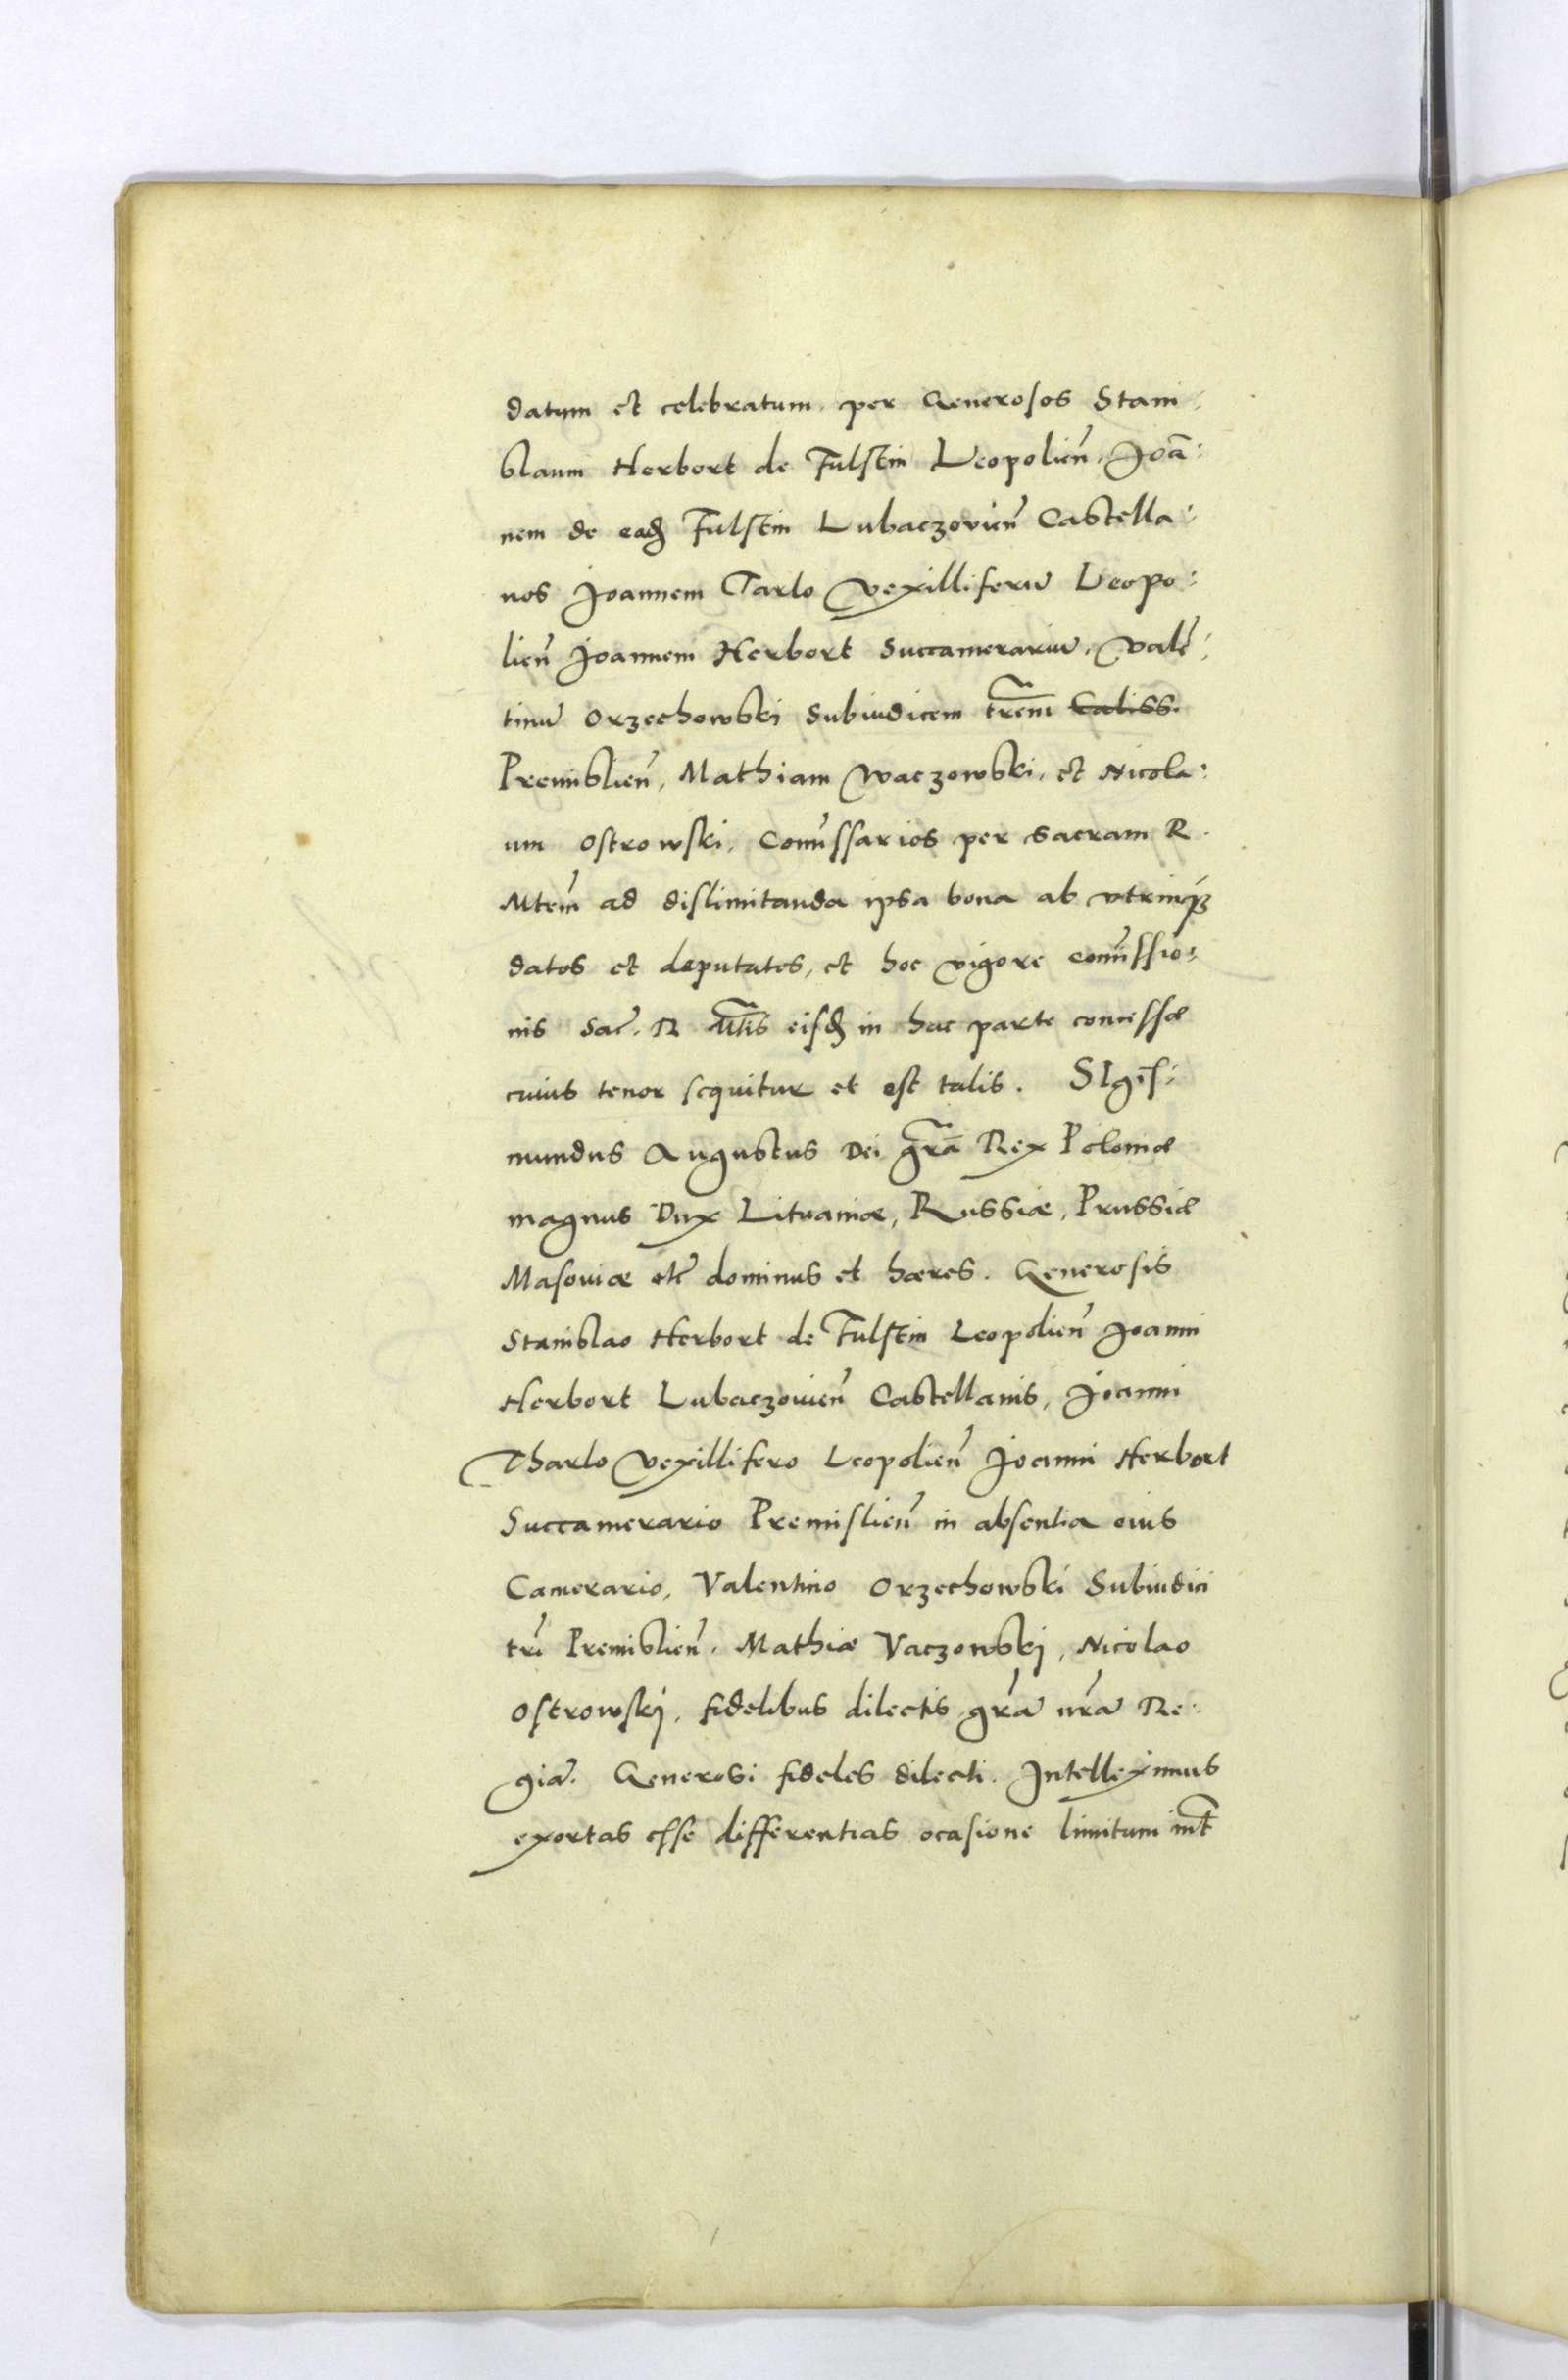 datum et celebratum per Generosos Stani:
slaum Herbort de Fulstin Leopolien̄, Joā:
nem de eadꝫ Fulstin Lubaczovien̄ Castella:
nos Joannem Tarlo vexilliferū Leopo:
lien̄ Joannem Herbort Succamerariū, valē:
tinū Orzechowski Subiudicem trēm̄ Caliss.
Premislien̄, Mathiam Waczowski, et Nicola:
um Ostrowski, Com̄issarios per Sacram R.
Mtem̄ ad dislimitanda ipsa bona ab vtrinqꝫ
datos et deputatos, et hoc vigore com̄issio:
nis Sac̄. R Mt̄is eisdꝫ in hac parte concessæ
cuius tenor sequitur et est talis. SIgis:
mundus Augustus Dei gr̄a Rex Poloniæ
magnus Dux Lituaniæ, Russiæ, Prussiæ
Masouiæ etc̄ dominus et hæres. Generosis
Stanislao Herbort de Fulstin Leopolien̄ Joanni
Herbort Lubaczouien̄ Castellanis, Joanni
Tharlo vexillifero Leopolien̄ Joanni Herbort
Succamerario Premislien̄ in absentia eius
Camerario, Valentino Orzechowski Subiudici
tr̄i Premislien̄. Mathiæ Vaczowskj, Nicolao
Ostrowskj, fidelibus dilectis gr̄a nr̄a Re:
giā. Generosi fideles dilecti. Intelleximus
exortas esse differentias ocasione limitum int̄